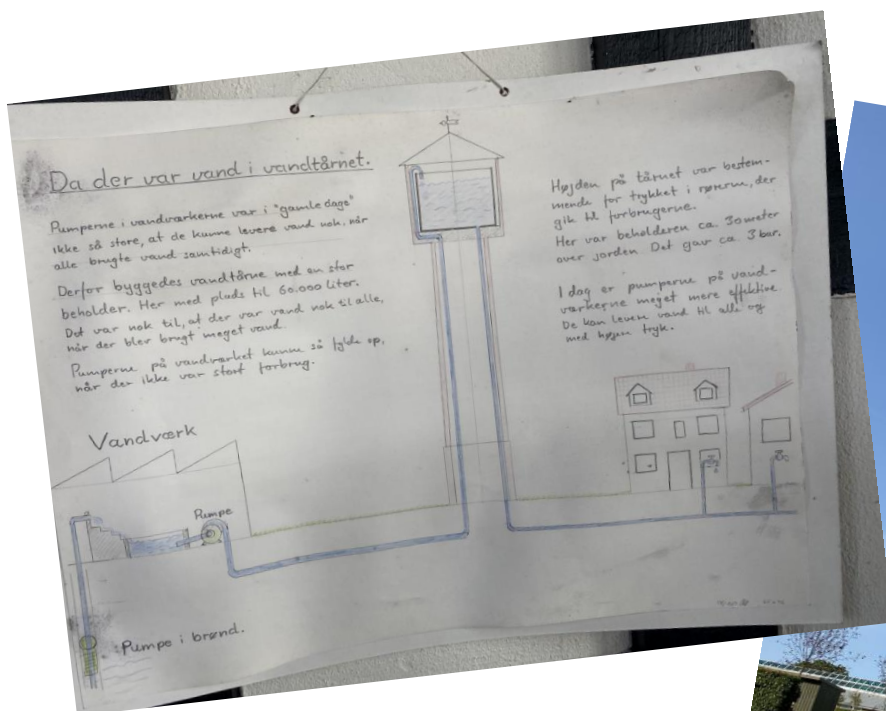 Da der var vand i vandtårnet.
Pumperne i vandværkerne var i "gamle dage"
ikke så store, at de kunne levere vand nok, når
alle brugte vand samtidigt.
Derfor byggedes vandtårne med en stor
beholder. Her med plads til 60.000 liter.
Det var nok til, at der var vand nok til alle,
når der blev brugt meget vand.
Pumperne på vandværket kunne så fylde op,
når der ikke var stort forbrug.
Højden på tårnet var bestem-
mende for trykket i rørerne, der
gik til forbrugerne.
Her var beholderen ca. 30 meter
over jorden Det gav ca. 3 bar.
I dag er pumperne på vand-
værkerne meget mere effektive
De kan levere vand til alle og
med højere tryk.
Vandværk
Pumpe
Pumpe i brønd.